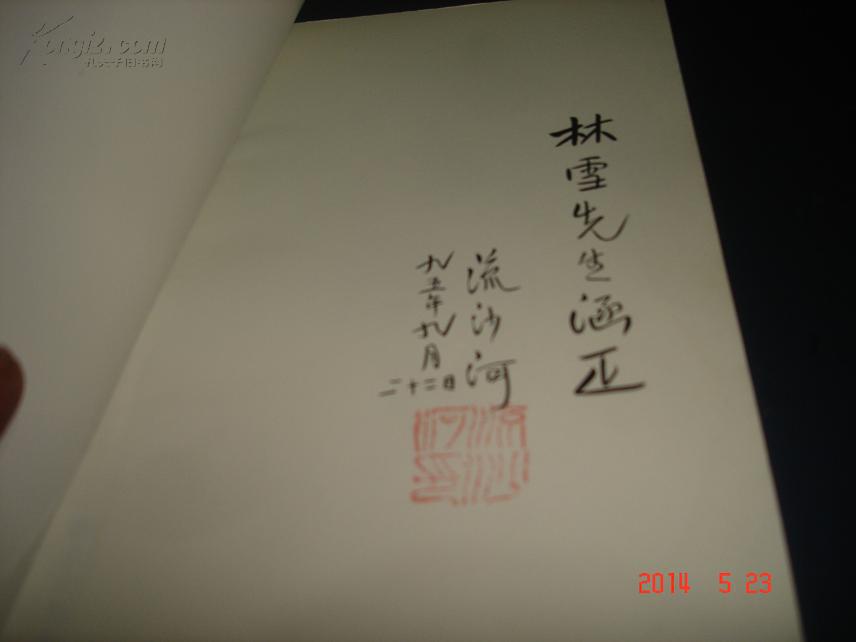 林雪先生涵正
流沙河
九五年九月
二十二日
流沙河印
Kongfz.com
孔夫子旧书网
2014 5 23